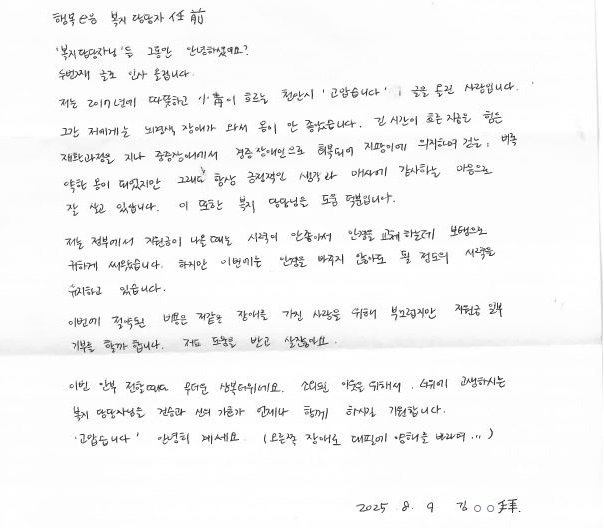 행복e음 복지 담당자 任 前
'복지담당자님'들 그동안 안녕하셨어요?
두번째 글로 인사 올립니다.
저는 2017년에 따뜻하고 人情이 흐르는 천안시 '고맙습니다' 글을 올린 사람입니다.
그간 저에게는 뇌경색 장애가 와서 몸이 안 좋았습니다. 긴 시간이 흐른 지금은 힘든
재활과정을 지나 중증장애에서 경증장애인으로 회복되어 지팡이에 의지하여 걷는, 비록
약한 몸이 되었지만 그래도 항상 긍정적인 생각과 매사에 감사하는 마음으로
잘 살고 있습니다. 이 또한 복지 담당님들 도움 덕분입니다.
저는 정부에서 지원금이 나올 때는 시력이 안좋아서 안경을 교체하는데 보탬으로
귀하게 써왔습니다. 하지만 이번에는 안경을 바꾸지 않아도 될 정도의 시력을
유지하고 있습니다.
이번에 절약된 비용은 저같은 장애를 가진 사람을 위해 부끄럽지만 지원금 일부
기부를 할까 합니다. 저도 도움을 받고 살잖아요.
이번 안부 전할때는 무더운 삼복더위네요. 소외된 이웃을 위해서, 더위에 고생하시는
복지 담당자님들 건승과 신의 가호가 언제나 함께 하시길 기원합니다.
'고맙습니다' 안녕히 계세요. (오른쪽 장애로 대필에 양해를 바라며...)
2025. 8. 9 김○○拜.